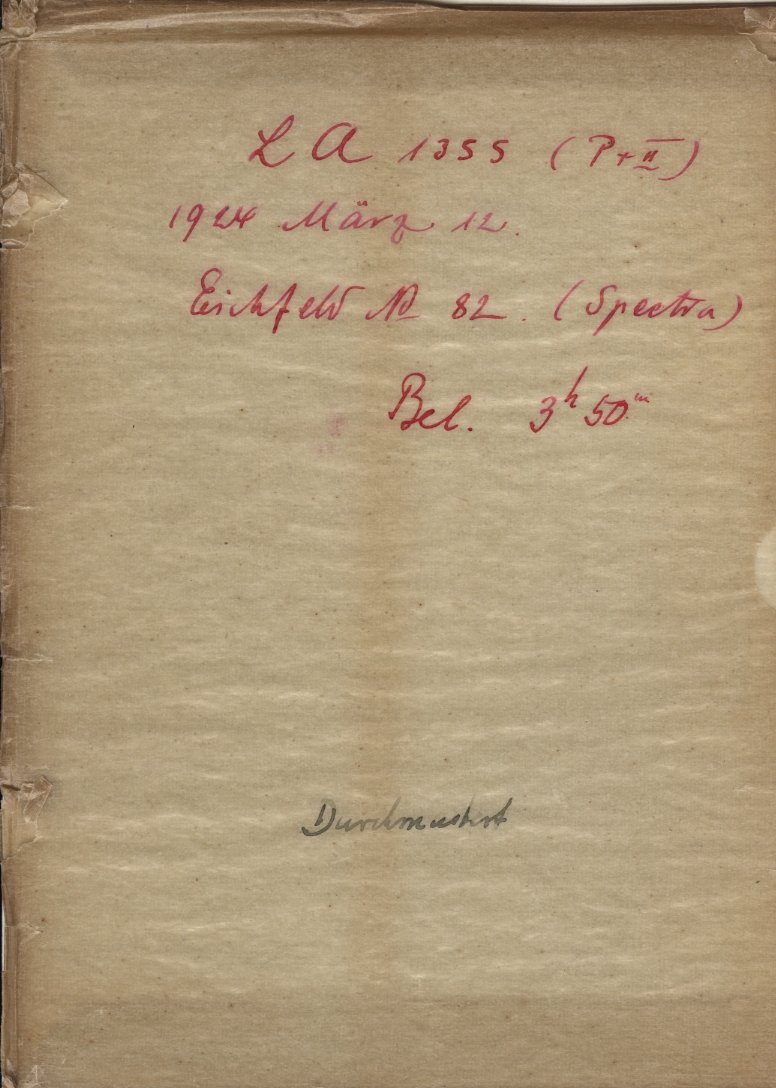 LA 1355 (P+II)
1924 März 12.
Eichfeld No 82. (Spectra)
Bel. 3h 50m
Durchmustert